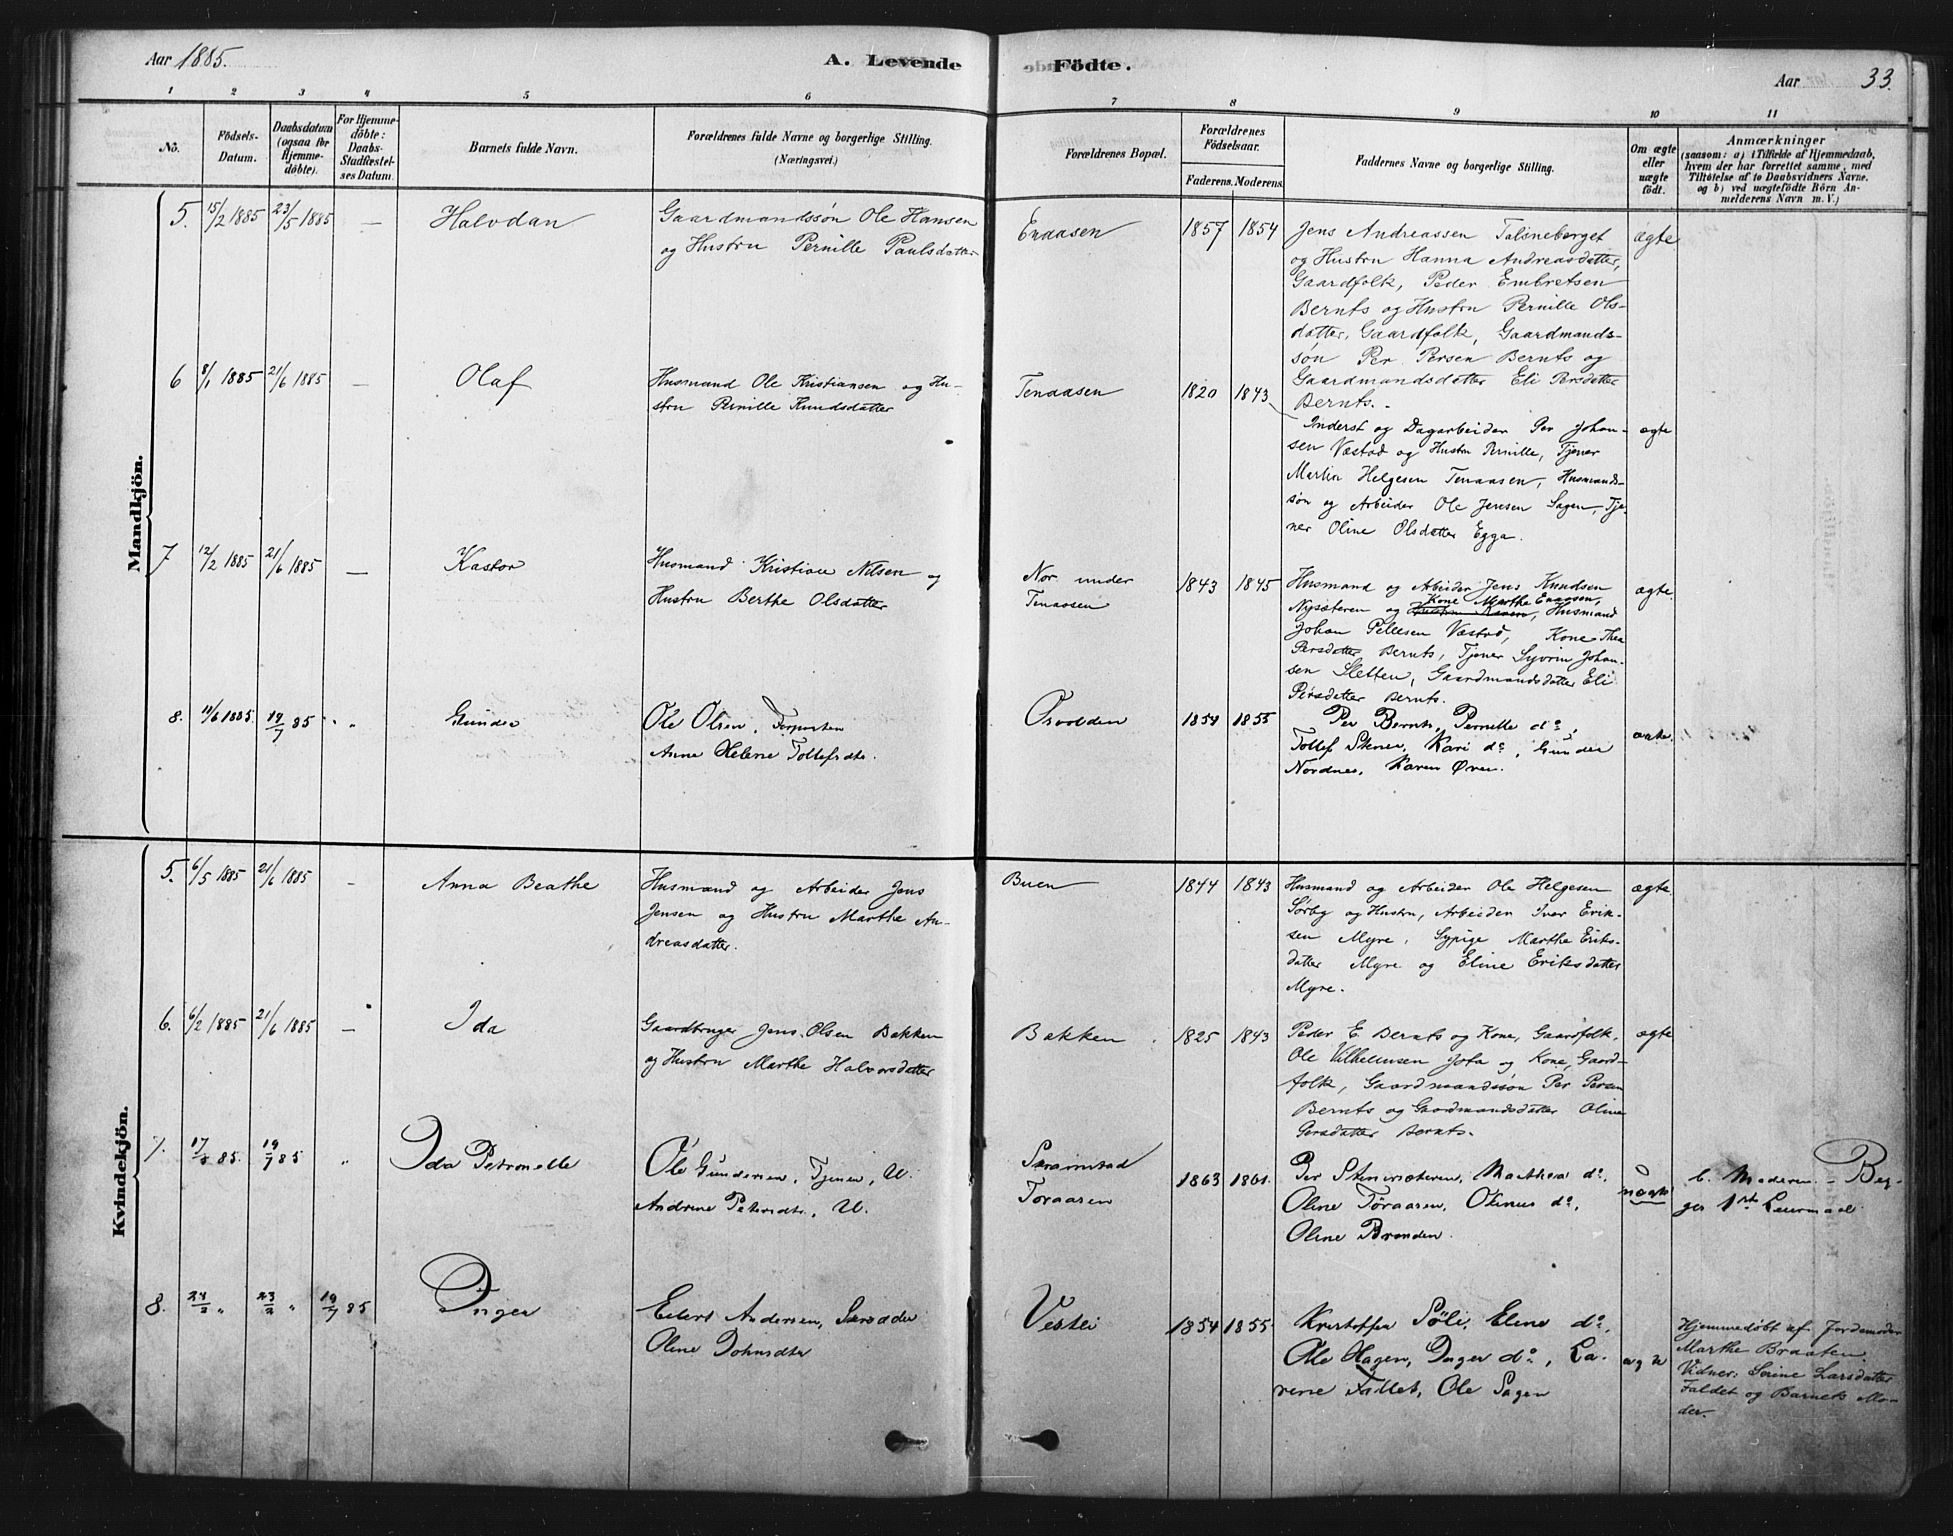 Aar 1885.
A. Levende
Födte.
Aar
33.
1 2 3 4 5 6 7 8 9 10 11
No.
Födsels-
Datum.
Daabsdatum
(ogsaa for
Hjemme-
döbte).
For Hjemme-
döbte:
Daabs-
Stadfæstel-
ses Datum.
Barnets fulde Navn.
Forældrenes fulde Navne og borgerlige Stilling.
(Næringsvei.)
Forældrenes Bopæl.
Forældrenes
Födselsaar.
Faderens. Moderens.
Faddernes Navne og borgerlige Stilling.
Om ægte
eller
uægte
födt.
Anmærkninger
(saasom: a) i Tilfælde af Hjemmedaab,
hvem der har forrettet samme, med
Tilföielse af to Daabsvidners Navne.
og b) ved uægtefödte Börn An-
melderens Navn m. V.)
Mandkjön.
5. 15/2 1885 23/5 1885 — Halvdan
Gaardmandssøn Ole Hansen
og Hustru Pernille Paulsdatter
Enaasen 1857 1854
Jens Andreassen Tolsneberget
og Hustru Hanna Andreasdatter,
Gaardfolk, Peder Embretsen
Bernts og Hustru Pernille Ols-
datter, Gaardfolk, Gaardmands-
søn Per Persen Bernts og
Gaardmandsdatter Eli Persdatter
Bernts.
ægte
6 8/1 1885 21/6 1885 — Olaf
Husmand Ole Kristiansen og Hu-
stru Pernille Knudsdatter
Tenaasen 1820 1843
Inderst og Dagarbeider Per Johan-
sen Væstad og Hustru Pernille, Tjener
Martin Helgesen Tenaasen, Husmands-
søn og Arbeider Ole Jensen Sagen, Tje-
ner Oline Olsdatter Egga.
ægte
7 12/2 1885 21/6 1885 — Kastor
Husmand Kristian Nilsen og
Hustru Berthe Olsdatter
Nor under
Tenaasen
1843 1845
Husmand og Arbeider Jens Knudsen
Nysæteren og Kone Marthe Enaasen, Husmand
Johan Pellesen Væstad, Kone Thea
Persdatter Bernts, Tjener Syvrin Johan-
sen Sletten, Gaardmandsdatter Eli
Persdatter Bernts.
ægte.
8. 11/6 1885. 19/7 85 " " Gunder
Ole Olsen,
Anne Helene Tollefsdtr.
1854 1855
Per Bernts, Pernille do,
Tollef Stener, Kari do, Gunder
Nordnes, Karen Øren.
ægte.
Kvindekjön.
5. 6/5 1885 21/6 1885 — Anna Beathe
Husmand og Arbeider Jens
Jensen og Hustru Marthe An-
dreasdatter.
Buen 1844 1843
Husmand og Arbeider Ole Helgesen
Sørby og Hustru, Arbeider Iver Erik-
sen Myre, Sypige Marthe Eriks-
datter Myre og Eline Eriksdatter
Myre.
ægte.
6. 6/2 1885 21/6 1885 — Ida
Gaardbruger Jens Olsen Bakken
og Hustru Marthe Halvorsdatter
Bakken. 1825 1843
Peder E. Bernts og Kone, Gaardfolk,
Ole Vilhelmsen Jota og Kone, Gaard-
folk, Gaardmandssøn Per Persen
Bernts og Gaardmandsdatter Oline
Persdatter Bernts.
ægte
7. 85. 19/7 85 " Ida Petronelle
Ole Gundersen, Tjener, U.
Andrine Petersdtr, U.
Toraasen
1863 1861.
Per Stenersæteren, Marthea do,
Oline Toraasen, Otinus do,
Oline Brænden.
uægte
b. Moderen – Beg-
ges 1ste Leiermaal
8. " " 19/7 85 Inger
Eilert Andersen,
Oline Johnsdtr
Vestli 1854 1855.
Kristoffer Söli, Eline do,
Ole Hagen, Inger do, La-
rene Fallet, Ole Sagen
ægte
Hjemmedøbt af Jordemoder
Marthe Braaten.
Vidner: Serine Larsdatter
Faldet og Barnets Mo-
der.